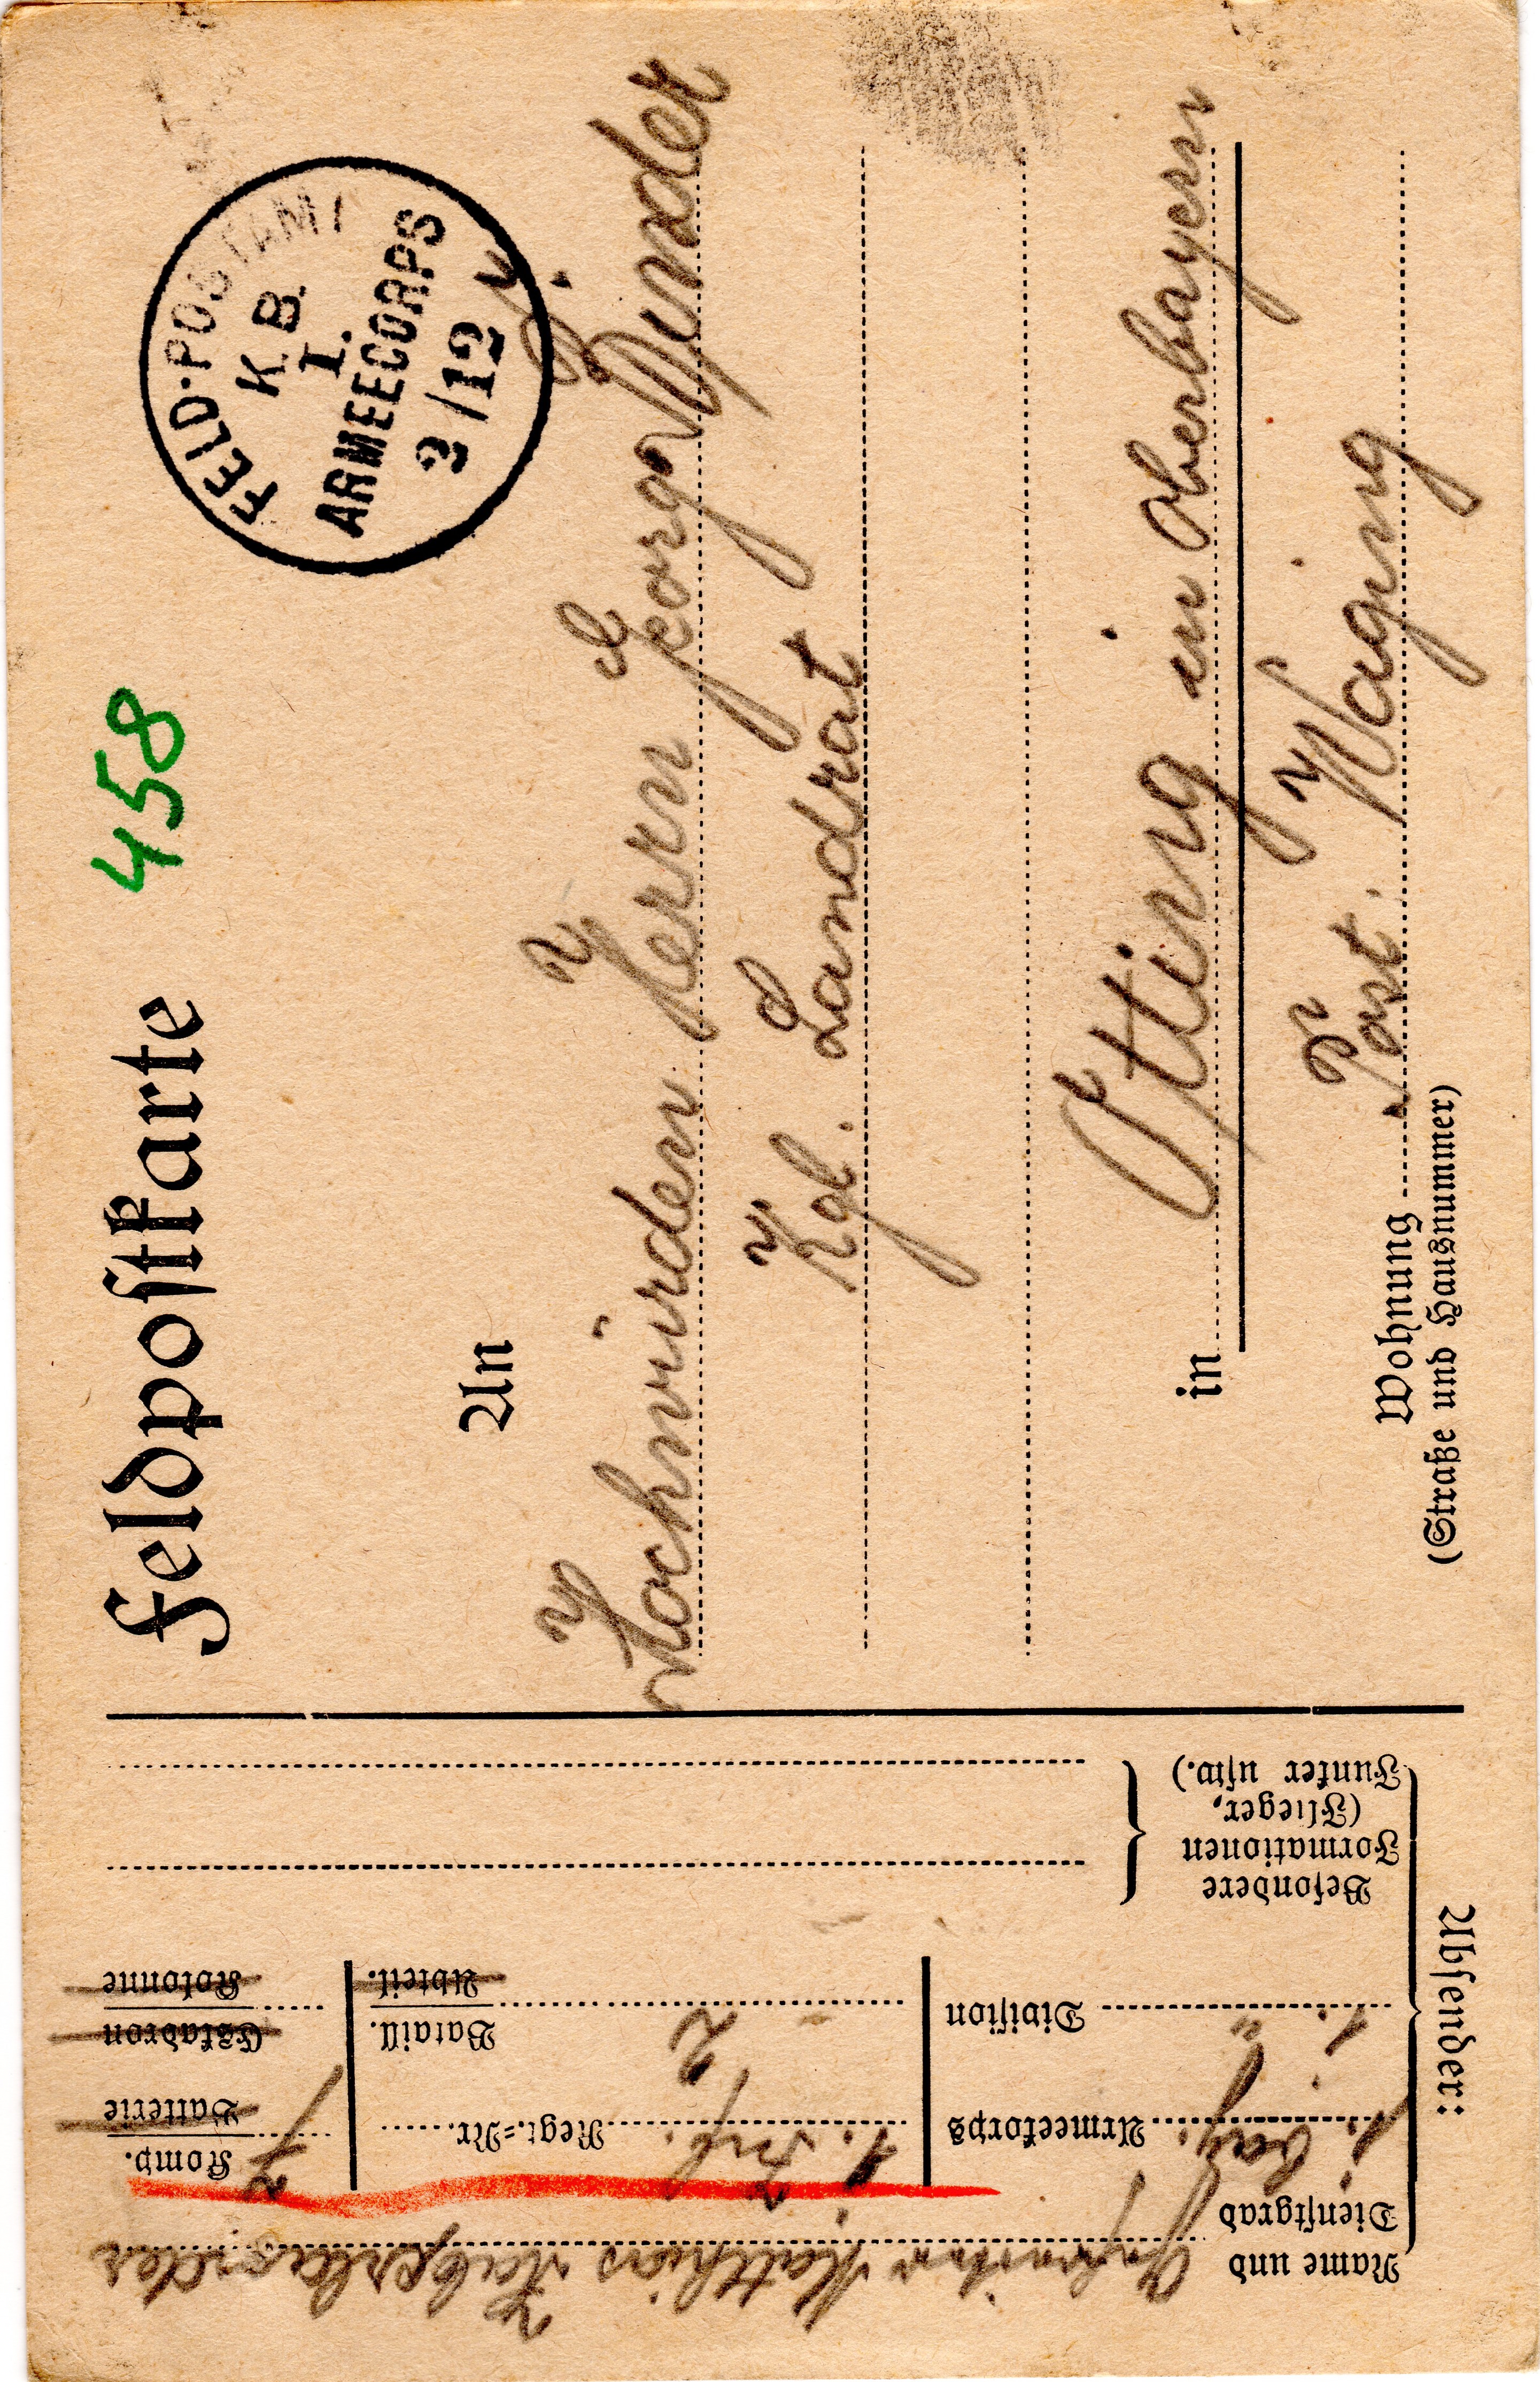 458
Feldpostkarte
FELD-POSTAMT
K. B.
I.
ARMEECORPS
2/12
An
Hochwürden Herrn Georg Wunder
Kgl. Landrat
in Otting in Oberbayern
Post. Waging
Wohnung
(Straße und Hausnummer)
Absender:
Name und Dienstgrad Infantrist Matthias
1. bay. Armeekorps 1. Inf. Regt.=Nr. 7 Komp.
Batterie
1. " Division 2 Bataill. Eskadron
Abteil. Kolonne
Besondere
Formationen
(Flieger,
Funker usw.)